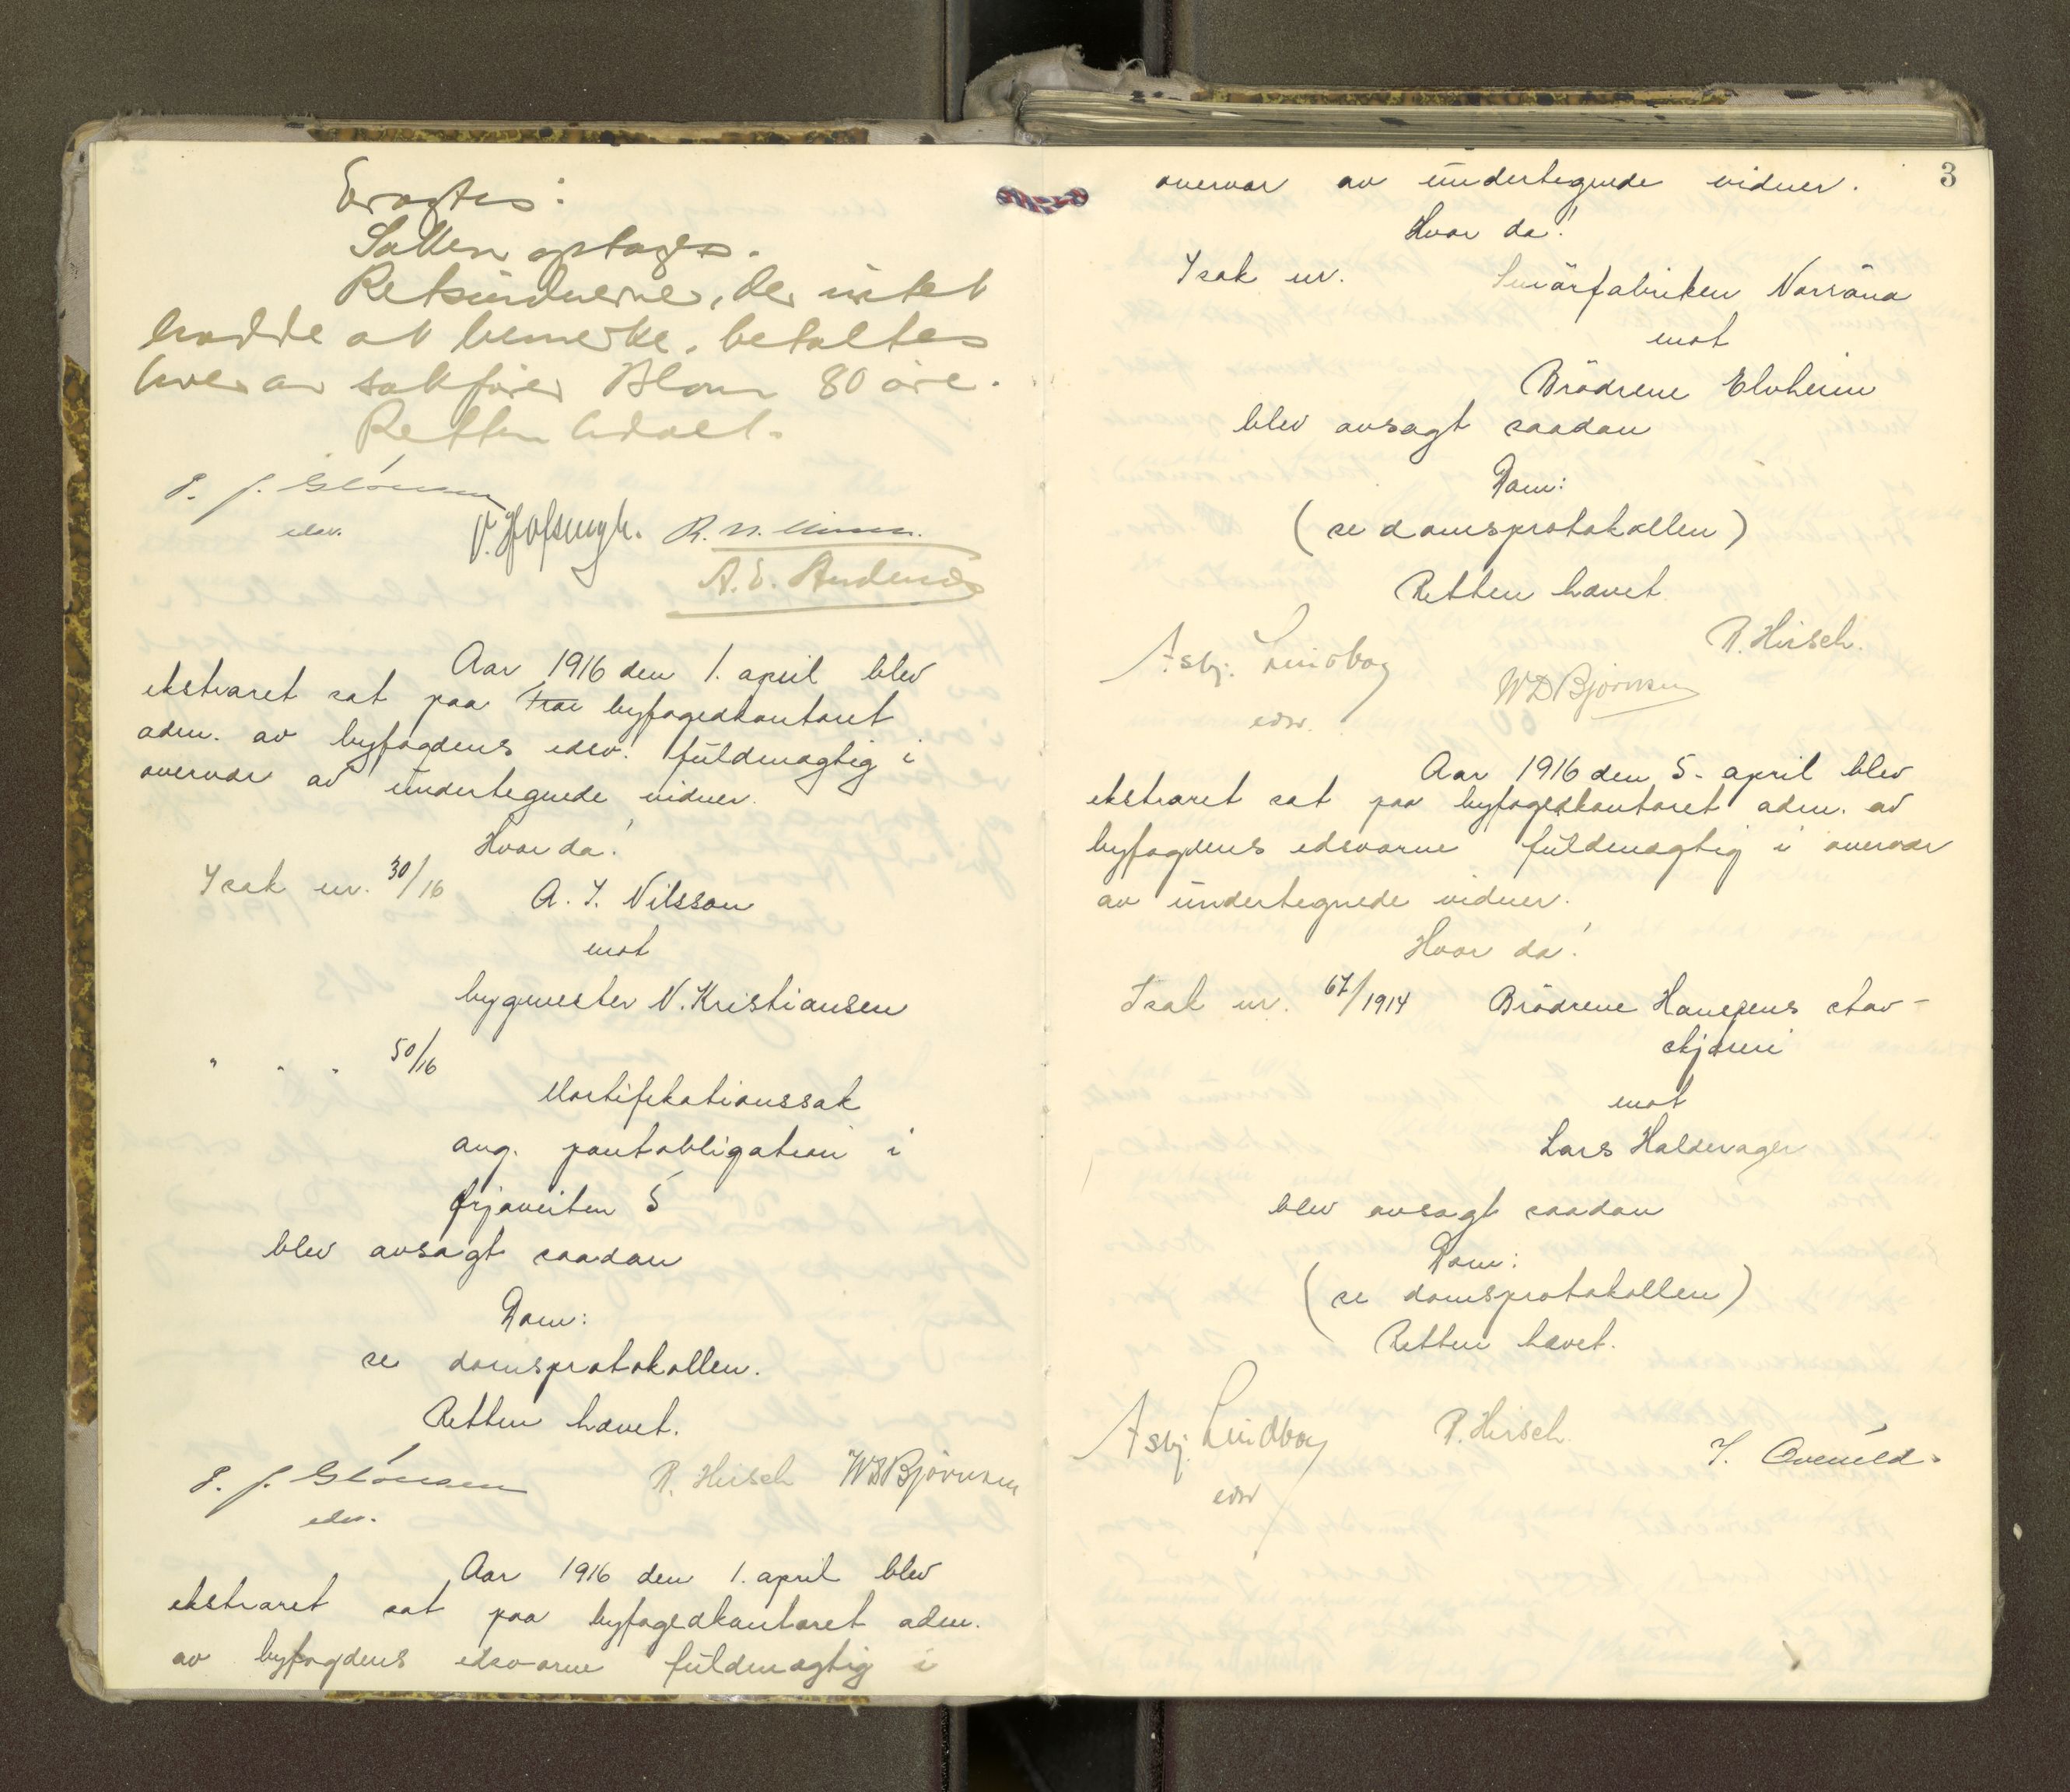 Eragtes:
Sakken optages.
Retsvidnerne, der intet
hadde at bemerke, betaltes
hver av sakfører Blom 80 øre.
Retten hævet.
edsv.
A. E. Andersen
Aar 1916 den 1. april blev
ekstraret sat paa byfogedkontoret
adm. av byfogdens edsv. fuldmægtig i
overvær av undertegnede vidner.
Hvor da!
I sak nr. 30/16 A. I. Nilsson
mot
bygmester N. Kristiansen
" " " 50/16
Mortifikationssak
ang. pantobligation i
Ørjaveiten 5
blev avsagt saadan
Dom:
se domsprotokollen.
Retten hævet.
edsv.
R. Hirsch WDBjörnsen
Aar 1916 den 1. april blev
ekstraret sat paa byfogedkontoret adm.
av byfogdens edsvorne fuldmægtig i
3
overvær av undertegnede vidner.
Hvor da!
I sak nr. Smörfabriken Norröna
mot
Brödrene Elvheim
blev avsagt saadan
Dom:
(se domsprotokollen)
Retten hævet
R. Hirsch.
Asbj. Lindboe
edsv.
WDBjörnsen
Aar 1916 den 5. april blev
ekstraret sat paa byfogedkontoret adm. av
byfogdens edsvorne fuldmægtig i overvær
av undertegnede vidner.
Hvor da!
I sak nr. 67/1914 Brödrene Hansens stav-
skjæreri
mot
Lars Haldorager
blev avsagt saadan
Dom:
(se domsprotokollen)
Retten hævet.
Asbj. Lindboe
edsv
R. Hirsch.